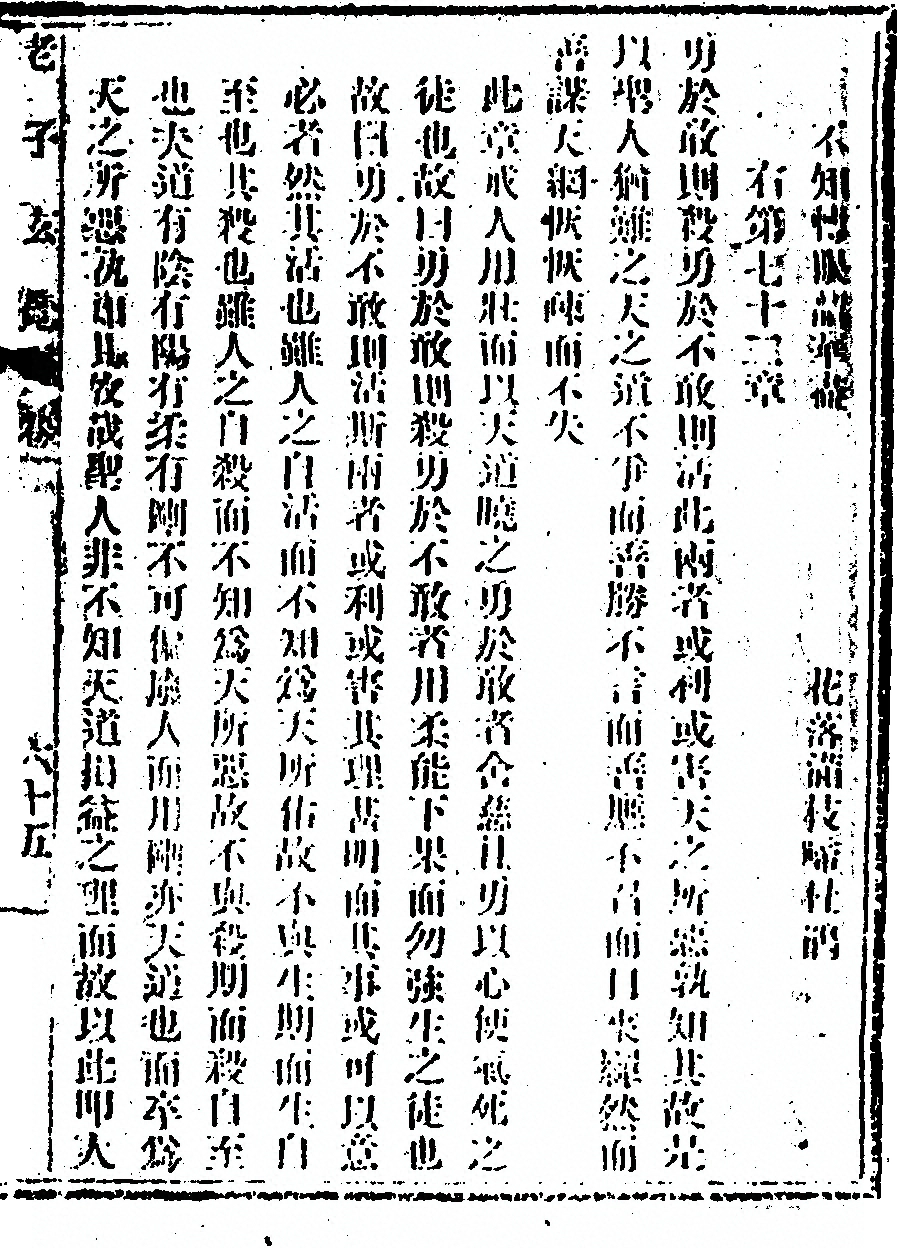 不知性眼
花落滿枝啼杜鵑
右第七十二章
勇於敢則殺勇於不敢則活此兩者或利或害天之所惡孰知其故是
以聖人猶難之天之道不爭而善勝不言而善應不召而自來繟然而
善謀天網恢恢疎而不失
此章戒人用壯而以天道曉之勇於敢者舍慈且勇以心使氣死之
徒也故曰勇於敢則殺勇於不敢者用柔能下果而勿強生之徒也
故曰勇於不敢則活斯兩者或利或害其理甚明而其事或可以意
必者然其活也雖人之自活而不知為天所佑故不與生期而生自
至也其殺也雖人之自殺而不知為天所惡故不與殺期而殺自至
也夫道有陰有陽有柔有剛不可偏廢人而用剛亦天道也而卒為
天之所惡孰知其故哉聖人非不知天道損益之理而故以此叩人
老子玄
六十五